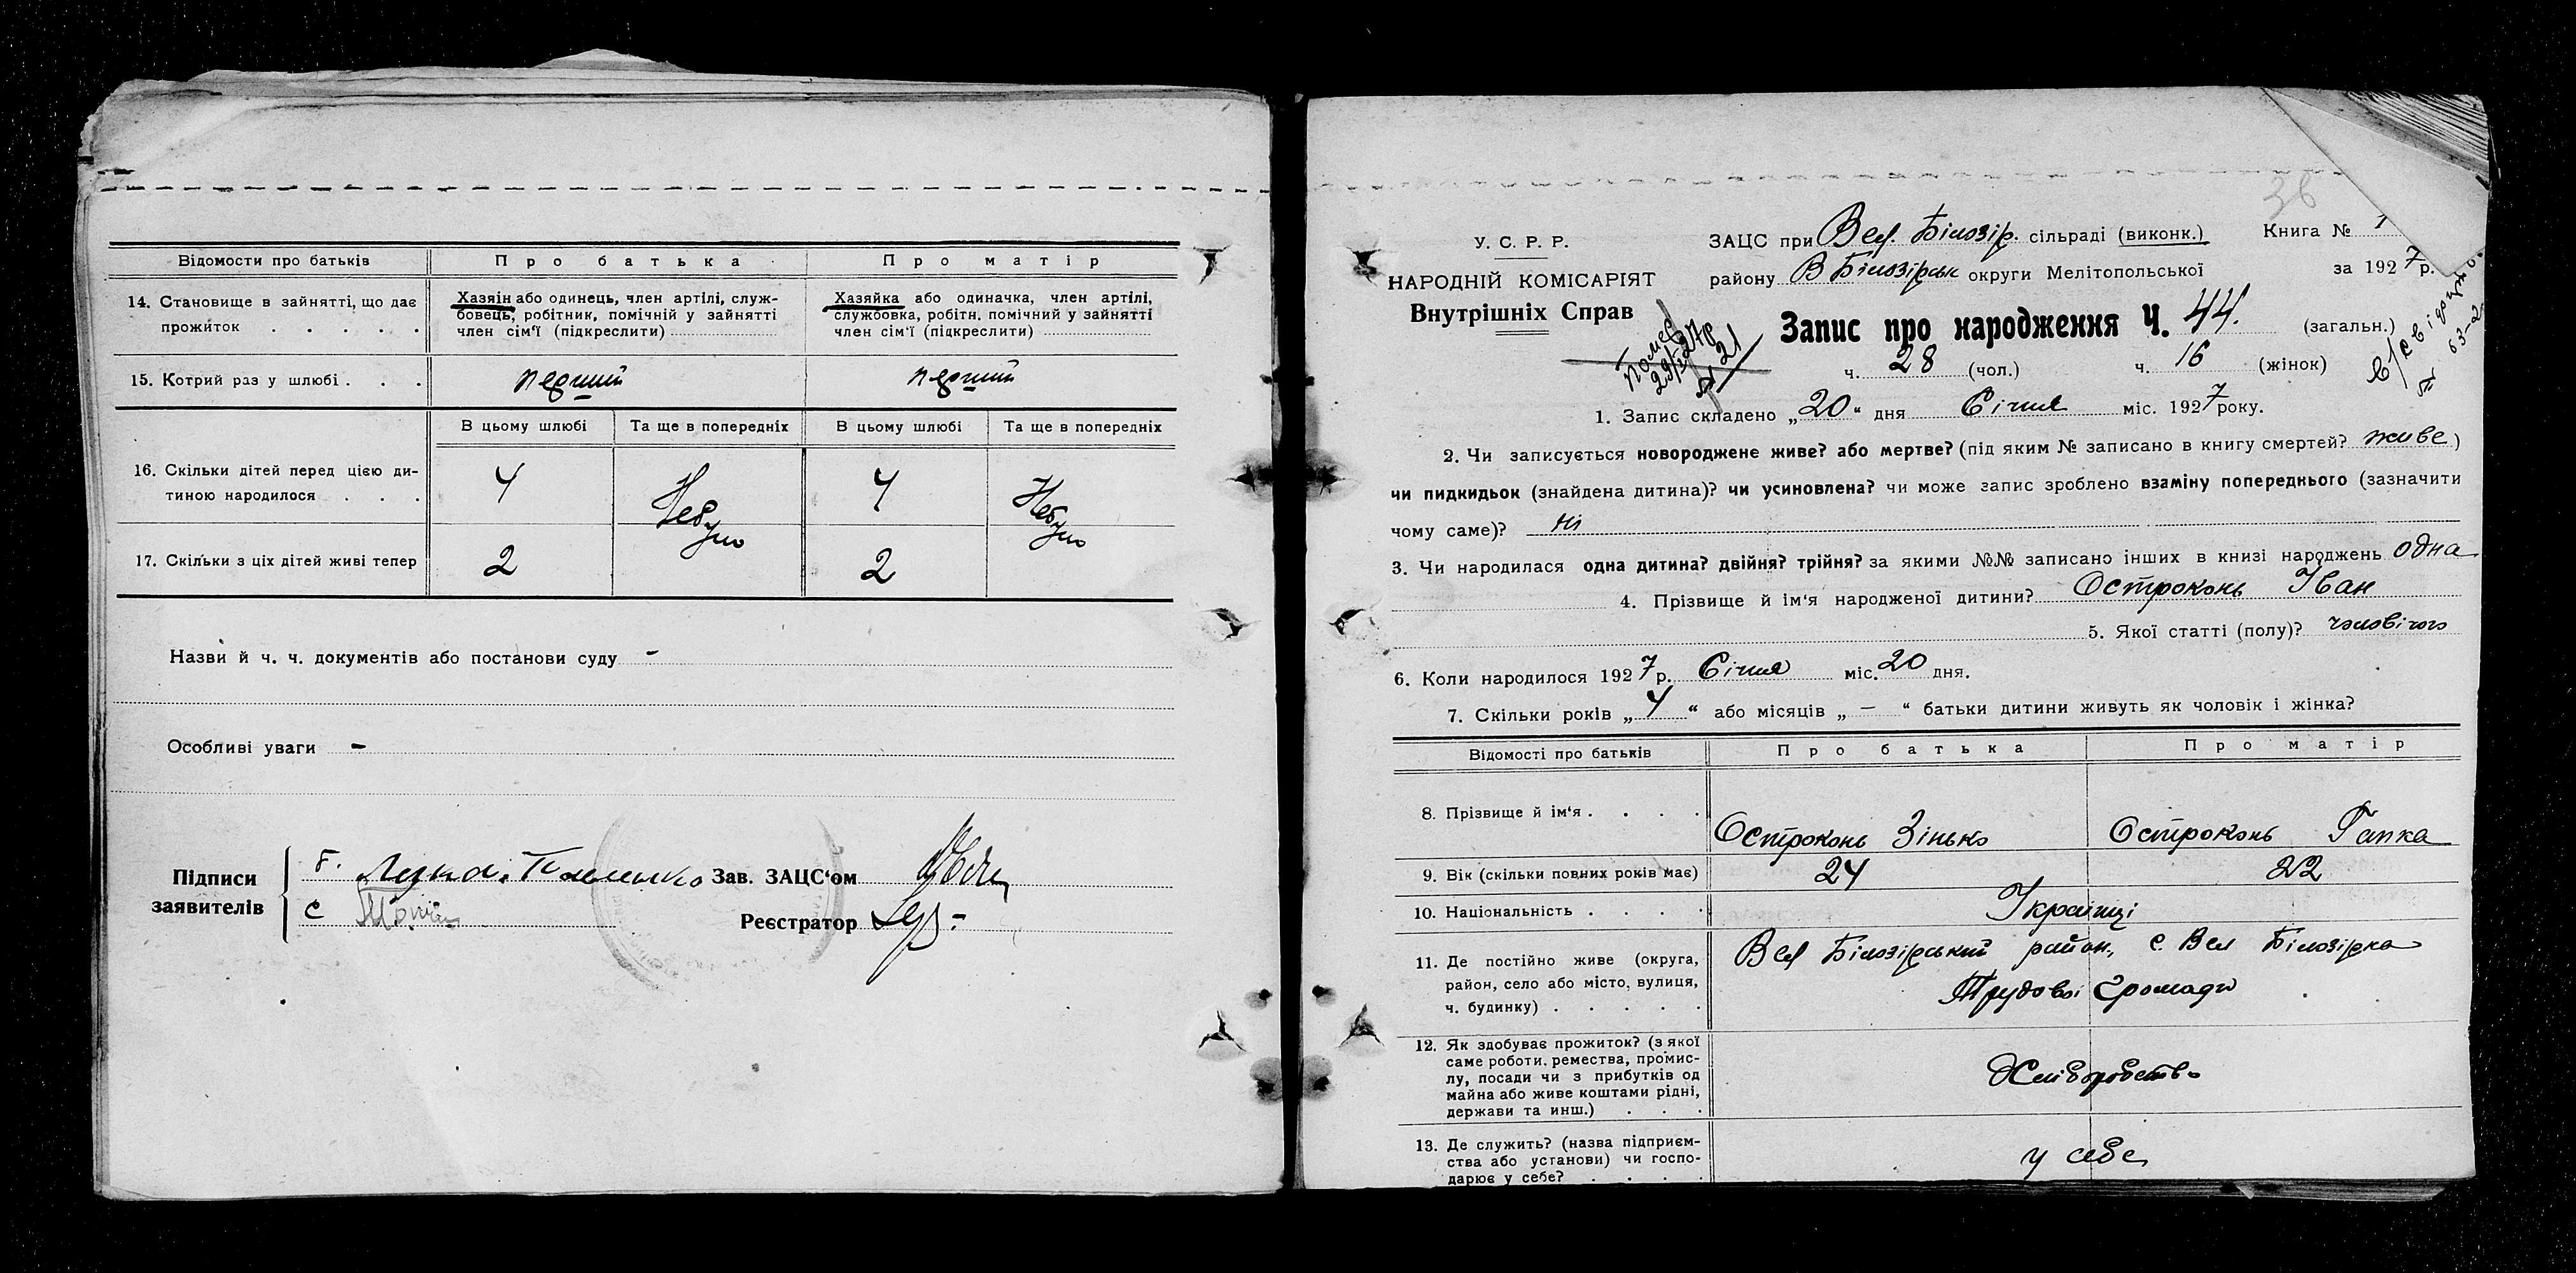 Відомости про батьків
Про батька
Про матір
14. Становище в зайнятті, що дає прожиток . . . . .
Хазяін або одинець, член артілі, служ-
бовець, робітник, помічній у зайнятті
член сім'ї (підкреслити)
Хазяйка або одиначка, член артілі,
службовка, робітн. помічний у зайнятті
член сім'ї (підкреслити)
15. Котрий раз у шлюбі . . .
перший
перший
В цьому шлюбі
Та ще в попередніх
В цьому шлюбі
Та ще в попередніх
16. Скільки дітей перед цією ди-
тиною народилося . . .
4
Небуло
4
Небуло
17. Скільки з ціх дітей живі тепер
2
2
Назви й ч. ч. документів або постанови суду -
Особливі уваги -
Підписи
заявителів
б.
Зав. ЗАЦС'ом
с
Реєстратор
36
У. С. Р. Р.
НАРОДНІЙ КОМІСАРІЯТ
Внутрішніх Справ
ЗАЦС при Вел. Білозір. сільраді (виконк.)
Книга № 1
району В Білозірськ округи Мелітопольської
за 1927 р.
Запис про народження Ч. 44.
(загальн.)
ч. 28 (чол.)
ч. 16 (жінок)
1. Запис складено „20“ дня Січня міс. 1927 року.
2. Чи записується новороджене живе? або мертве? (під яким № записано в книгу смертей? живе)
чи пидкидьок (знайдена дитина)? чи усиновлена? чи може запис зроблено взаміну попереднього (зазначити
чому саме)? ні
3. Чи народилася одна дитина? двійня? трійня? за якими №№ записано інших в книзі народжень одна
4. Прізвище й ім'я народженої дитини? Остроконь Іван
5. Якої статті (полу)? чоловічого
6. Коли народилося 1927 р. Січня міс. 20 дня.
7. Скільки років „4“ або місяців „—“ батьки дитини живуть як чоловік і жінка?
Відомості про батьків
Про батька
Про матір
8. Прізвище й ім'я . . . .
Остроконь Зінько
Остроконь Гапка
9. Вік (скільки повних років має)
24
22
10. Національність . . . .
Українці
11. Де постійно живе (округа,
район, село або місто, вулиця,
ч. будинку) . . . . .
Вел Білозірський район, с. Вел Білозірка
Трудової Громади
12. Як здобуває прожиток? (з якої
саме роботи, ремества, промис-
лу, посади чи з прибутків од
майна або живе коштами рідні,
держави та инш.) . . .
Хліборобство
13. Де служить? (назва підприєм-
ства або установи) чи госпо-
дарює у себе? . . . .
у себе